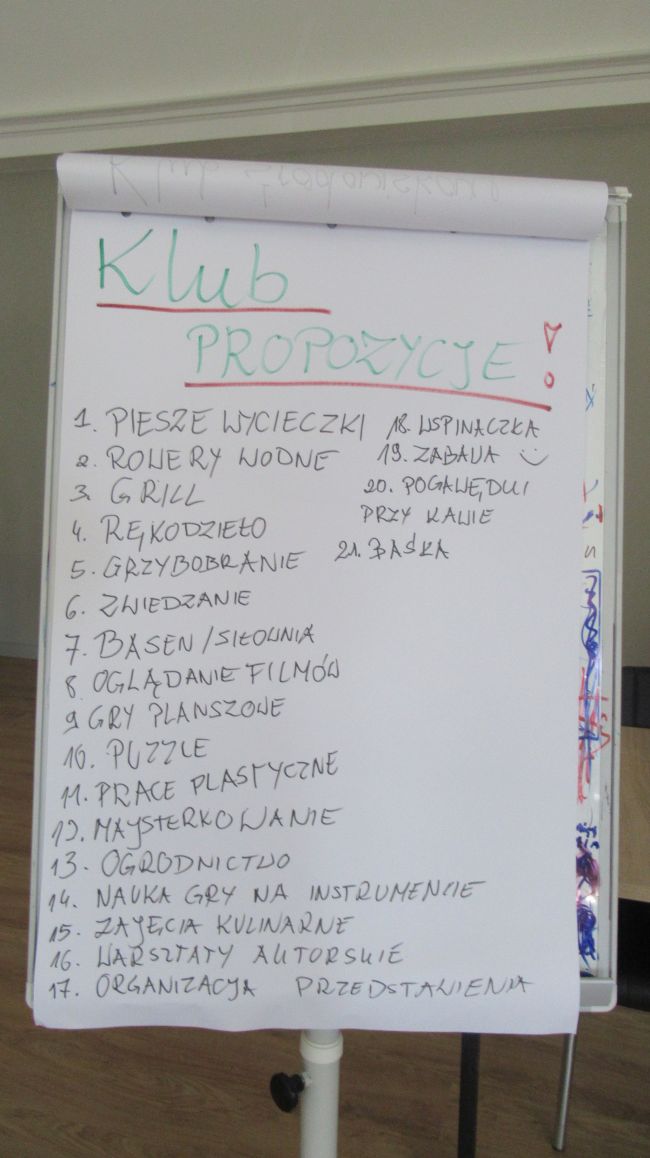 Klub
PROPOZYCJE !
1. PIESZE WYCIECZKI
2. ROWERY WODNE
3. GRILL
4. RĘKODZIEŁO
5. GRZYBOBRANIE
6. ZWIEDZANIE
7. BASEN/SIŁOWNIA
8. OGLĄDANIE FILMÓW
9 GRY PLANSZOWE
10. PUZZLE
11. PRACE PLASTYCZNE
12. MAJSTERKOWANIE
13. OGRODNICTWO
14. NAUKA GRY NA INSTRUMENCIE
15. ZAJĘCIA KULINARNE
16. WARSZTATY AUTORSKIE
17. ORGANIZACJA PRZEDSTAWIENIA
18. WSPINACZKA
19. ZABAWA
20. POGAWĘDKI
PRZY KAWIE
21. BAŚKA